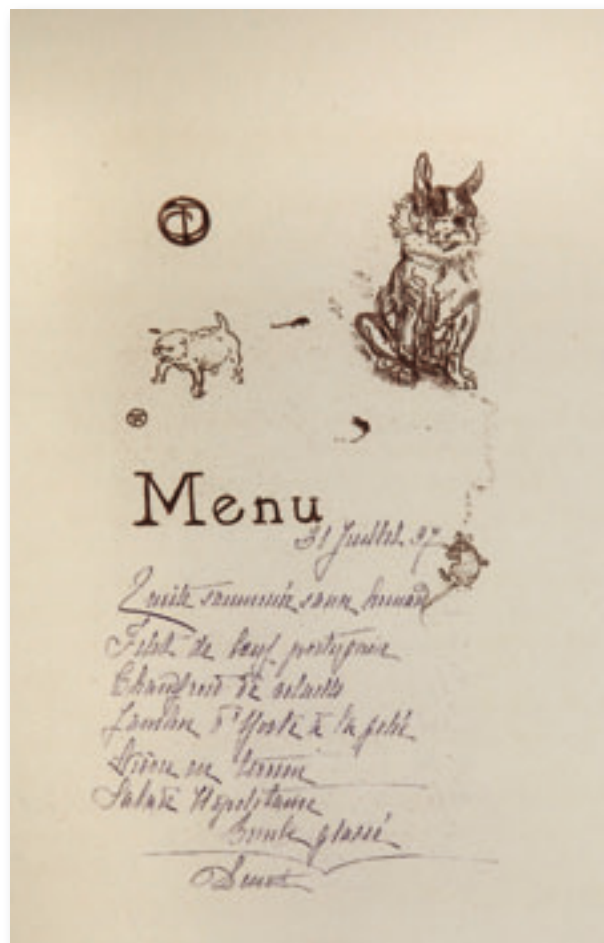 Menu
31 Juillet 97
Truite saumonée sauce homard
Filet de bœuf portugaise
Chaudfroid de volaille
Jambon d'York à la gelée
en terrine
Salade Napolitaine
Bombe glacée